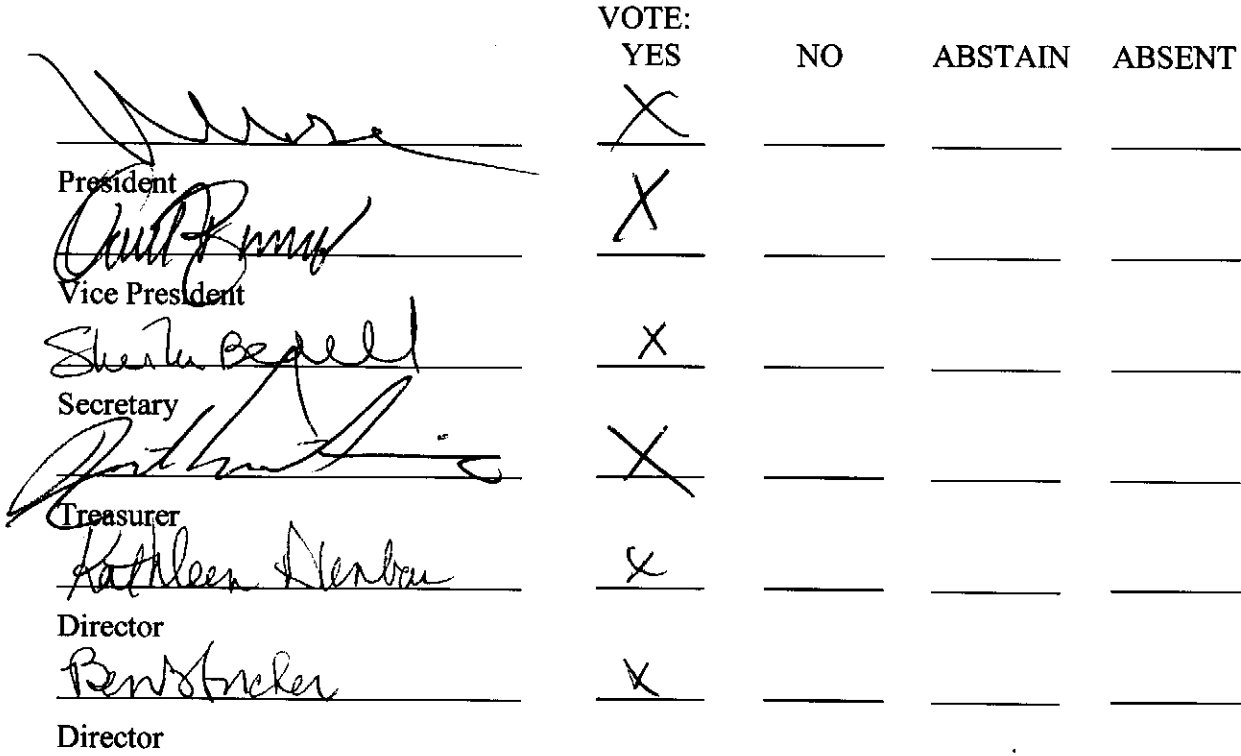 VOTE:
YES NO ABSTAIN ABSENT
X
President
X
Vice President
Sheila Bedell X
Secretary
X
Treasurer
Kathleen X
Director
Ben X
Director